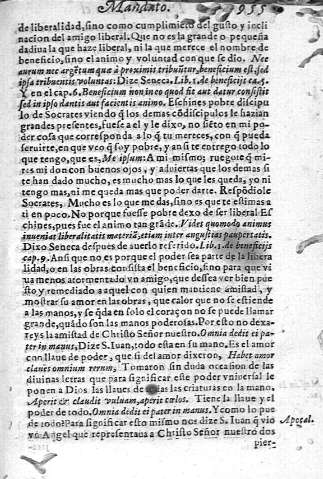 Mandato. 955
de liberalidad, sino como cumplimiẽto del gusto y incli
nacion del amigo liberal. Que no es la grande o pequeña
dadiua la que haze liberal, ni la que merece el nombre de
beneficio, sino el animo y voluntad con que se dio. Nec
aurum nec argẽtum quæ à proximis tribuitur, beneficium est, sed
ipsa tribuentis voluntas: Dize Seneca. Lib. 1. de beneficijs ca. 5.
Y en el cap. 6. Beneficium non in eo quod fit aut datur consistit
sed in ipso dantis aut facientis animo. Eschines pobre discipu
lo de Socrates viendo q̃ los demas cõdiscipulos le hazian
grandes presentes, fuese a el y le dixo, no siẽto en mi po
der cosa que corresponda a lo q̃ tu mereces, con q̃ pueda
seruirte, en que veo q̃ soy pobre, y ansi te entrego todo lo
que tengo, que es, Me ipsum: A mi mismo; ruegote q̃ mi-
res mi don con buenos ojos, y aduiertas que los demas si
te han dado mucho, es mucho mas lo que les queda, yo ni
tengo mas, ni me queda mas que poder darte. Respõdiole
Socrates, Mucho es lo que me das, sino es que te estimas a
ti en poco. No porque fuesse pobre dexo de ser liberal Es
chines, pues fue el animo tan grãde. Vides quomodo animus
inueniat liberalitatis materiã, etiam inter angustias paupertatis,
Dixo Seneca despues de auerlo referido. Lib. 1. de beneficijs
cap. 9. Ansi que no es porque el poder sea parte de la libera
lidad, o en las obras consista el beneficio, sino para que vi
ua menos atormentado vn amigo, que dessea ver bien pue
sto y remediado a aquel con quien mantiene amistad, y
mostrar su amor en las obras, que calor que no se estiende
a las manos, y se q̃da en solo el coraçon no se puede llamar
grande, quãdo son las manos poderosas. Por esto no dexa-
reys la amistad de Christo Señor nuestro. Omnia dedit ei pa-
ter in manus, Dize S. Iuan, todo esta en su mano. Es el amor
con llaue de poder, que si del amor dixeron, Habet amor
claues omnium rerum, Tomaron sin duda ocasion de las
diuinas letras que para significar este poder vniuersal le
ponen a Dios las llaues de todas las criaturas en la mano.
Aperit & claudit vuluam, aperit cœlos. Tiene la llaue y el
poder de todo. Omnia dedit ei pater in manus. Y como lo pue
de todo? Para significar esto mismo nos dize S. Iuan q̃ vio
vn Angel que representaua a Christo Señor nuestro dos
Apocal.
pier-